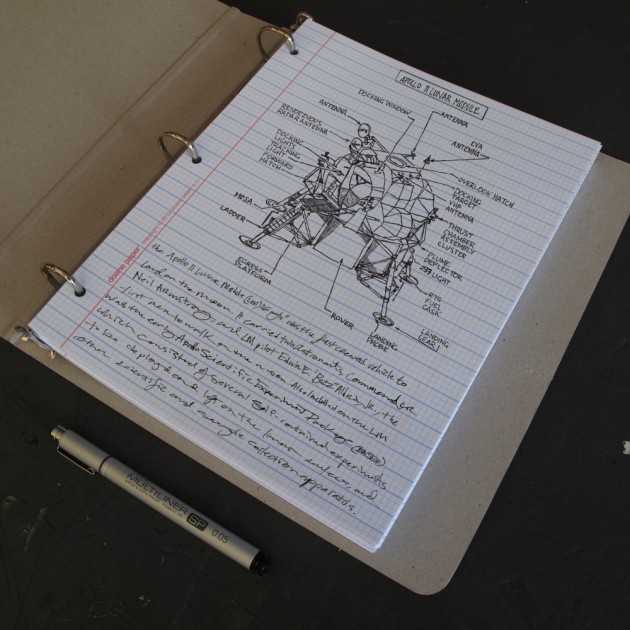 APOLLO 11 LUNAR MODULE
DOCKING WINDOW
ANTENNA
ANTENNA
EVA
ANTENNA
RENDEZVOUS
RADAR ANTENNA
DOCKING
LIGHTS
TRACKING
LIGHT
FORWARD
HATCH
OVERLOOK HATCH
DOCKING
TARGET
VHF
ANTENNA
THRUST
CHAMBER
ASSEMBLY
CLUSTER
PLUME
DEFLECTOR
LIGHT
RTG
FUEL
CASK
MESA
LADDER
EGRESS
PLATFORM
ROVER
LANDING
PROBE
LANDING
GEAR
doane paper
the Apollo 11 Lunar Module (LM) "Eagle" was the first crewed vehicle to
land on the moon. It carried two astronauts, Commander
Neil Armstrong and LM pilot Edwin E. "Buzz" Aldrin, Jr., the
first men to walk on the moon. Also included on the LM
was the early Apollo Scientific Experiment Package
which consisted of several self-contained experiments
to be deployed and left on the lunar surface, and
other scientific and sample collection apparatus.
MULTILINER SP 0.05